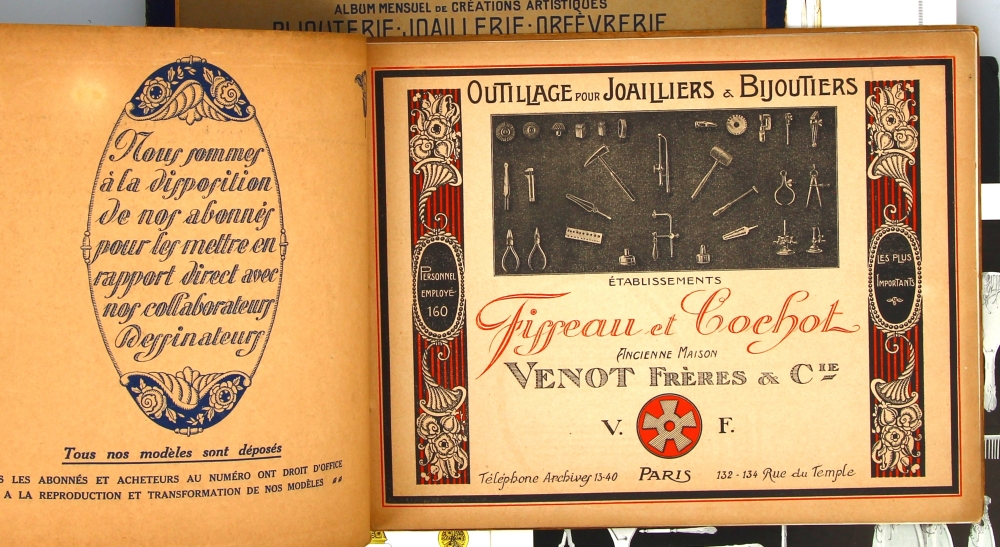 ALBUM MENSUEL DE CRÉATIONS ARTISTIQUES
BIJOUTERIE·JOAILLERIE·ORFÈVRERIE
Nous sommes
à la disposition
de nos abonnés
pour les mettre en
rapport direct avec
nos collaborateurs
Dessinateurs
Tous nos modèles sont déposés
LES ABONNÉS ET ACHETEURS AU NUMÉRO ONT DROIT D'OFFICE
A LA REPRODUCTION ET TRANSFORMATION DE NOS MODÈLES
OUTILLAGE POUR JOAILLIERS & BIJOUTIERS
PERSONNEL
EMPLOYÉ
160
LES PLUS
IMPORTANTS
ÉTABLISSEMENTS
Fisseau et Cochot
ANCIENNE MAISON
VENOT FRÈRES & CIE
V. F.
Téléphone Archives 13-40 PARIS 132-134 Rue du Temple